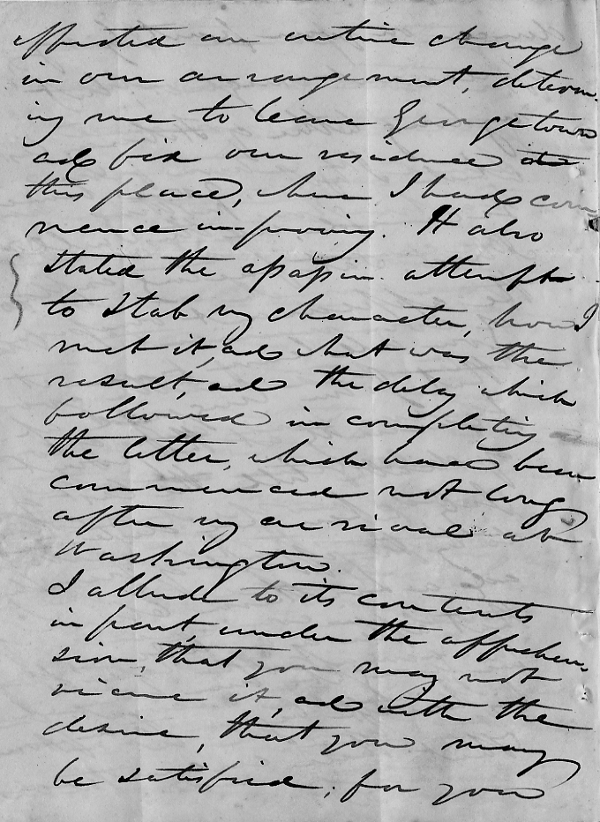 effected an entire change
in our arrangement, determ
ing me to leave Georgetown
and fix our residence at
this place, where I had com
mence improving. It also
stated the assassin attempt
to stab my character, how I
met it, and what was the
result, and the delay which
followed in completing
the letter, which had been
commenced not long
after my arrival at
Washington.
I allude to its contents
in part, under the apprehen
sion, that you may not
receive it, and with the
desire, that you may
be satisfied, for you